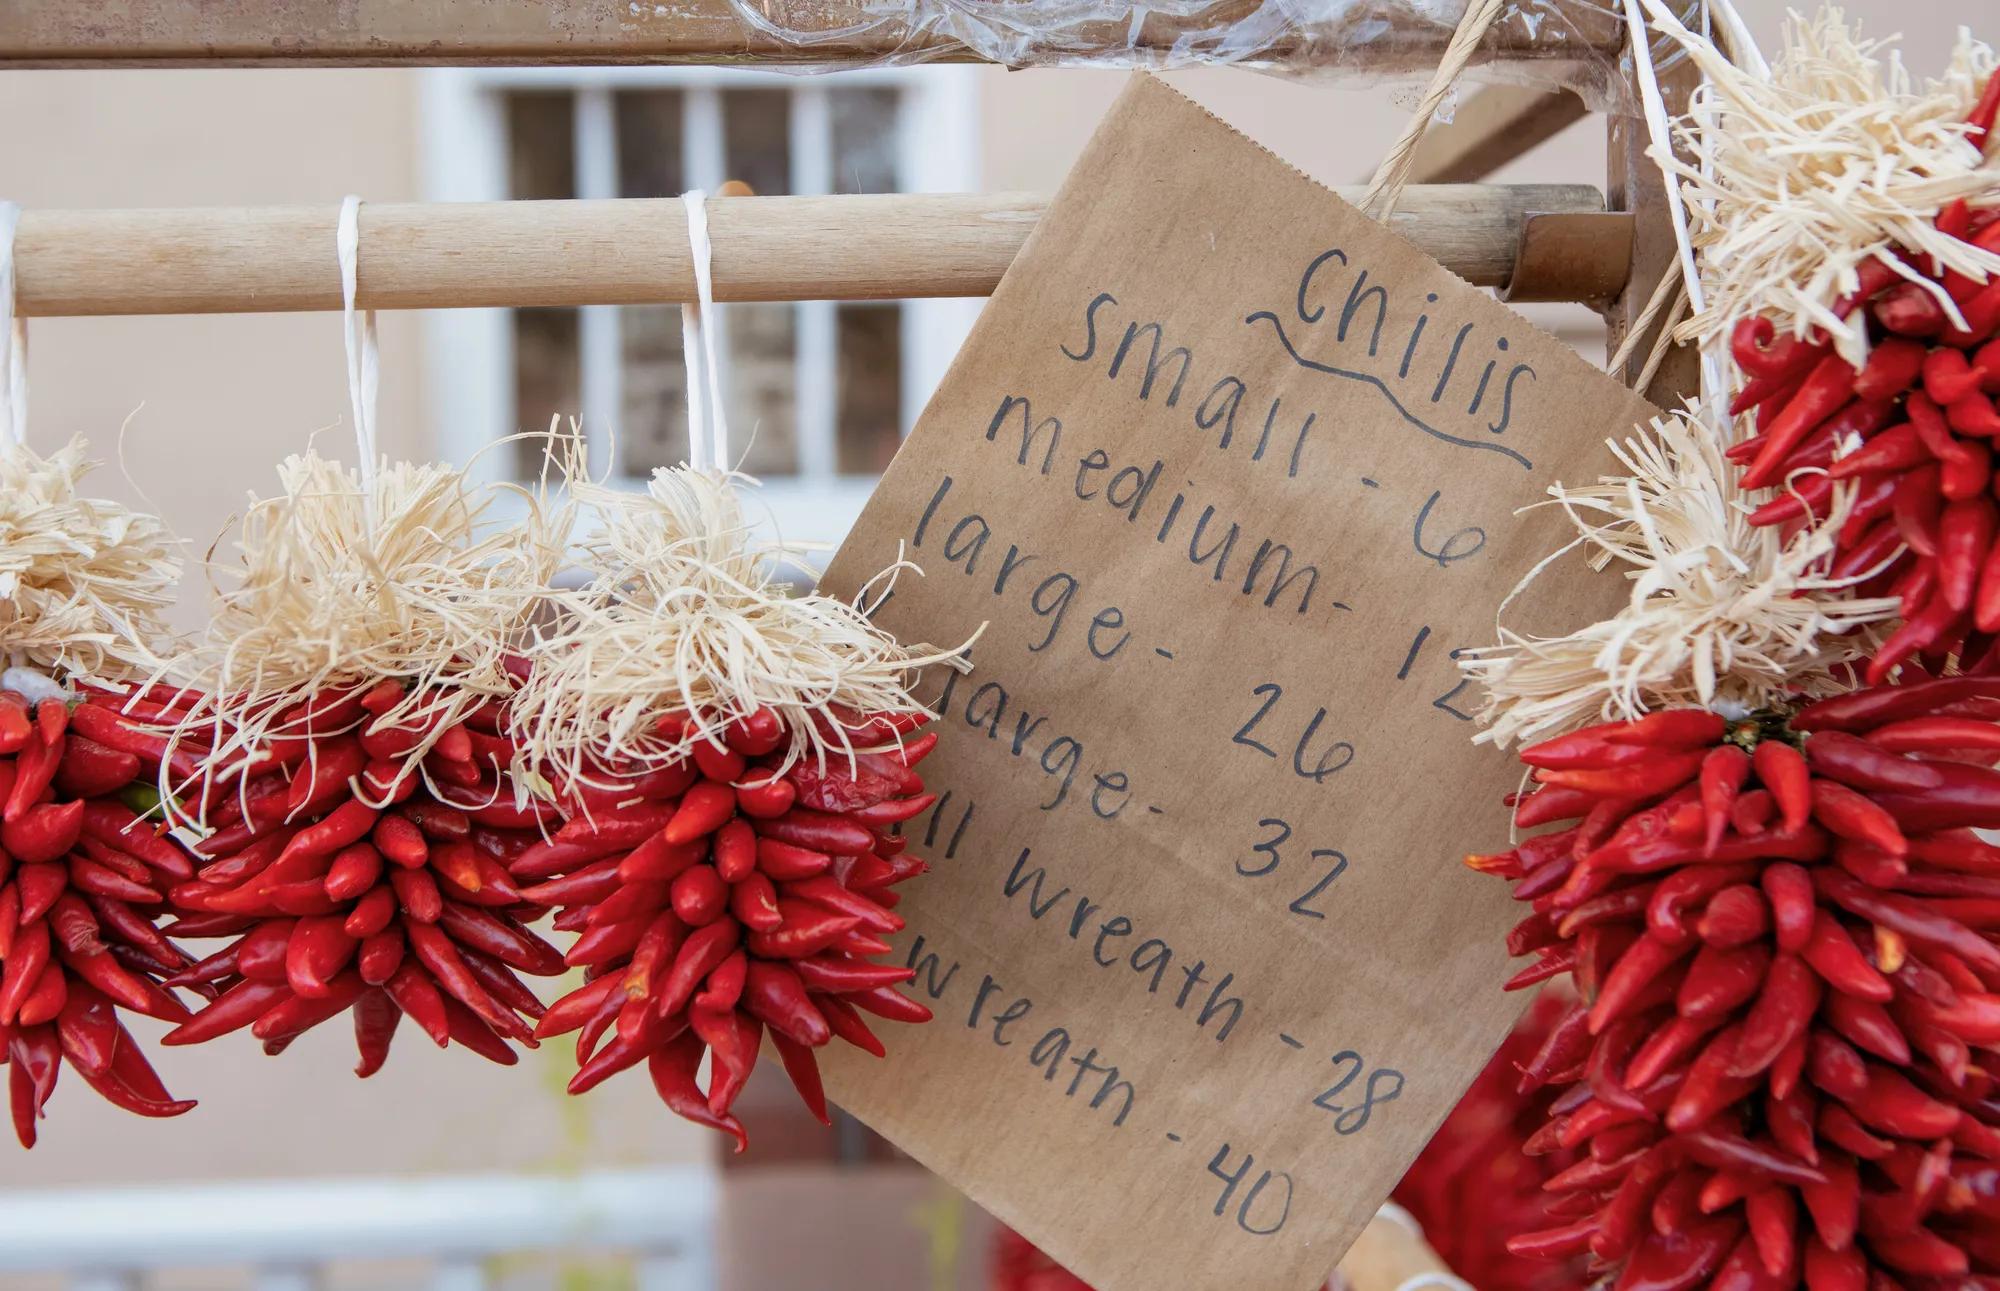 chilis
small - 6
medium - 12
large - 26
large - 32
wreath - 28
wreath - 40